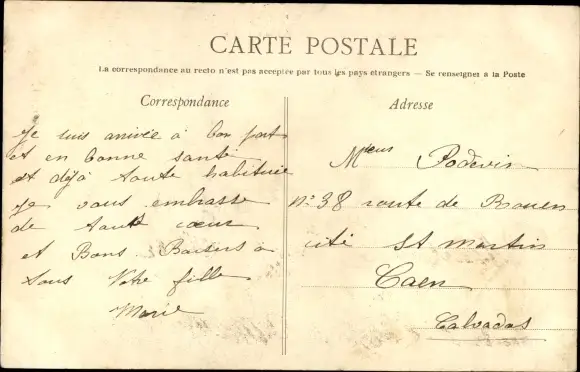 CARTE POSTALE
La correspondance au recto n'est pas acceptée par tous les pays étrangers — Se renseigner à la Poste
Correspondance
Je suis arrivée à bon port
et en bonne santé
et déjà toute habituée
je vous embrasse
de tout cœur
et Bons Baisers à
tous Votre fille
Marie
Adresse
Mieur Podevin
n° 38 route de Rouen
cité St martin
Caen
Calvados